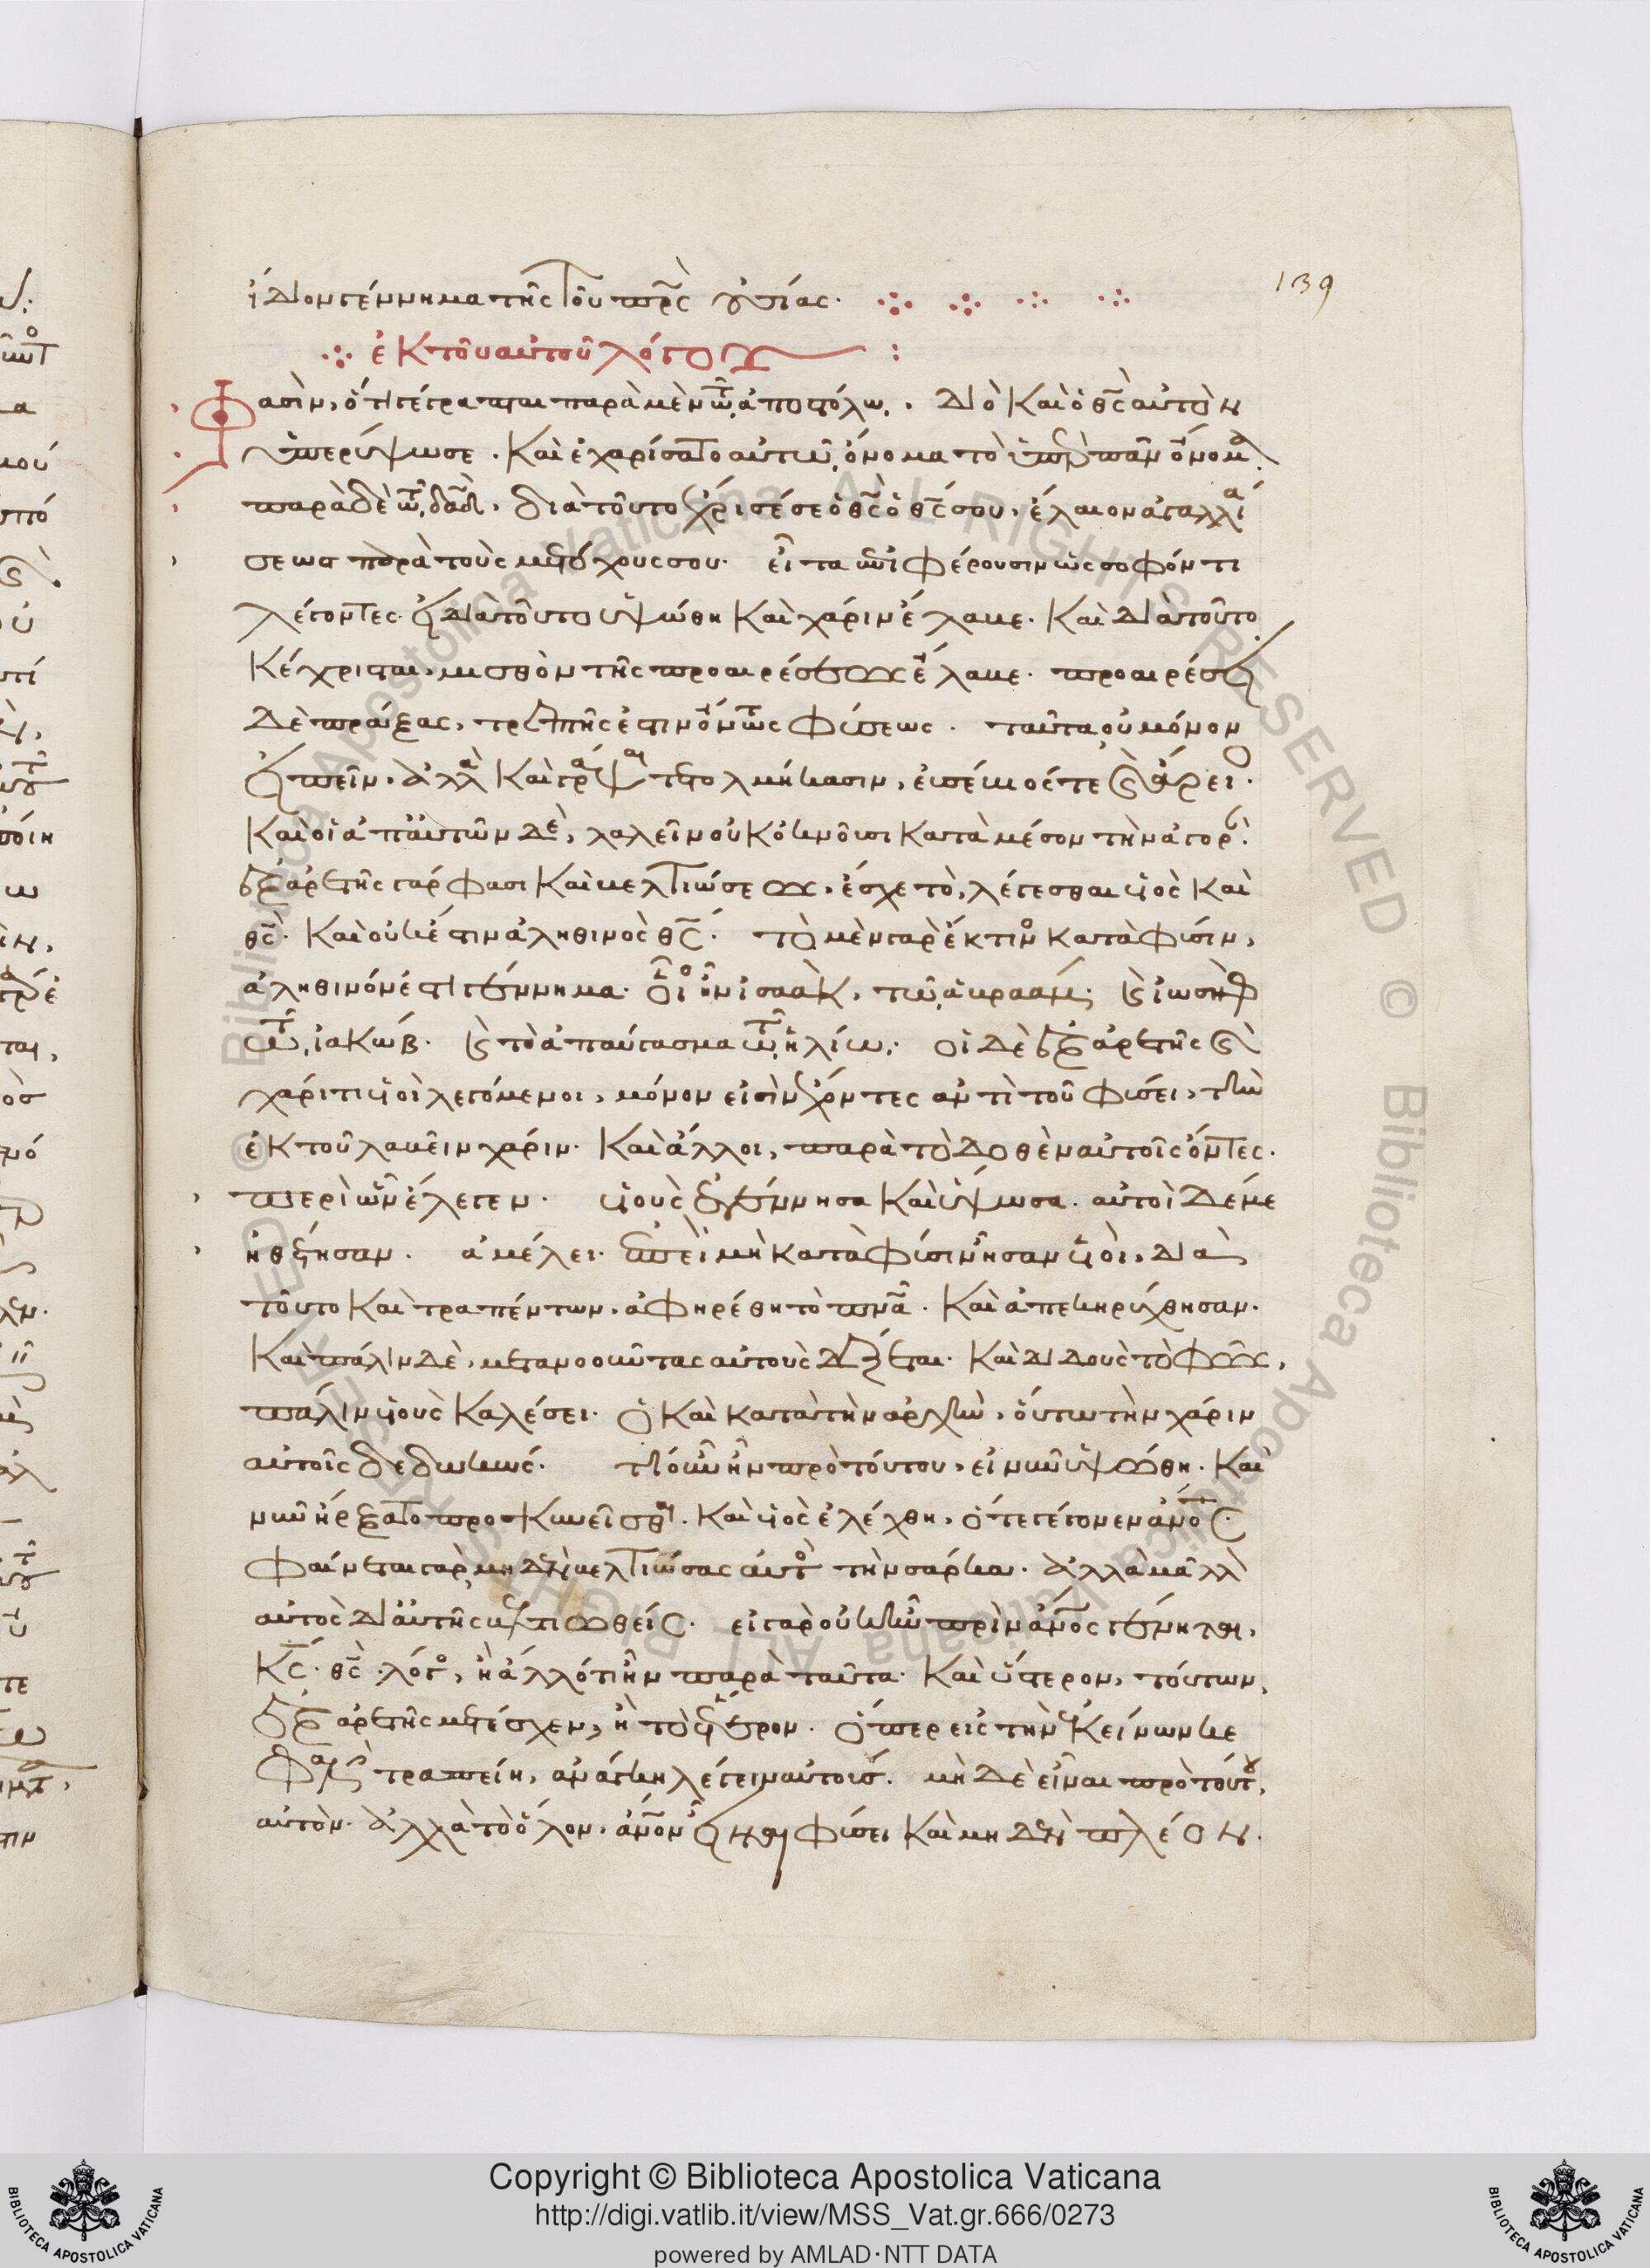 139
ἴδιον γέννημα τῆς τοῦ πρς οὐσίας.
ἐκ τοῦ αὐτοῦ λόγου :
Φασὶν, ὅτι γέγραπται παρὰ μὲν τῶ ἀποστόλω. Διὸ καὶ ὁ θς αὐτὸν
ὑπερύψωσε. καὶ ἐχαρίσατο αὐτῶ ὄνομα τὸ ὑπὲρ πᾶν ὄνομα.
παρὰ δὲ τῶ δαδ, διὰ τοῦτο ἔχρισέ σε ὁ θς ὁ θς σου, ἔλαιον ἀγαλλιά
σεως παρὰ τοὺς μετόχους σου. εἶτα ἐπιφέρουσιν ὡς σοφόν τι
λέγοντες. εἰ διὰ τοῦτο ὑψώθη καὶ χάριν ἔλαβε. καὶ διὰ τοῦτο
κέχρισται, μισθὸν τῆς προαιρέσεως ἔλαβε. προαιρέσει
δὲ πράξας, τρεπτῆς ἐστιν ὄντως φύσεως. ταῦτα οὐ μόνον
εἰπεῖν, ἀλλὰ καὶ γράψαι τετολμήκασιν, εὐσέβιός τε καὶ ἄρειος.
καὶ οἱ ἀπ' αὐτῶν δὲ, λαλεῖν οὐκ ὀκνοῦσι κατὰ μέσον τὴν ἀγοράν.
ἐξ ἀρετῆς γάρ φασι καὶ βελτιώσεως, ἔσχε τὸ λέγεσθαι υἱὸς καὶ
θς. καὶ οὐκ ἔστιν ἀληθινὸς θς. τὸ μὲν γὰρ ἔκ τινος κατὰ φύσιν,
ἀληθινόν ἐστι γέννημα. οἷος ἦν ἰσαὰκ, τῶ ἀβραάμ. καὶ ἰωσὴφ
τῶ ἰακώβ. καὶ τὸ ἀπαύγασμα τῶ ἡλίω. οἱ δὲ ἐξ ἀρετῆς καὶ
χάριτι υἱοὶ λεγόμενοι, μόνον εἰσὶν ἔχοντες ἀντὶ τοῦ φύσει, τὴν
ἐκ τοῦ λαβεῖν χάριν. καὶ ἄλλοι, παρὰ τὸ δοθὲν αὐτοῖς ὄντες.
περὶ ὧν ἔλεγεν. υἱοὺς ἐγέννησα καὶ ὕψωσα. αὐτοὶ δέ με
ἠθέτησαν. ἀμέλει. ἐπεὶ μὴ κατὰ φύσιν ἦσαν υἱοὶ, διὰ
τοῦτο καὶ τραπέντων, ἀφηρέθη τὸ πνα. καὶ ἀπεκηρύχθησαν.
καὶ πάλιν δὲ, μετανοοῦντας αὐτοὺς δέξεται. καὶ διδοὺς τὸ φῶς,
πάλιν υἱοὺς καλέσει. ὁ καὶ κατὰ τὴν ἀρχὴν, οὕτω τὴν χάριν
αὐτοῖς δεδωκώς. τί οὖν ἦν πρὸ τούτου, εἰ νῦν ὑψώθη. καὶ
νῦν ἤρξατο προσκυνεῖσθαι. καὶ υἱὸς ἐλέχθη, ὅτε γέγονεν ἄνος.
φαίνεται γὰρ μηδὲν βελτιώσας αὐτὸς τὴν σάρκα. ἀλλὰ μᾶλλον
αὐτὸς δι' αὐτῆς βελτιωθείς. εἰ γὰρ οὐκ ἦν πρὶν ἄνος γένηται,
κς. θς. λόγος, ἢ ἄλλό τι ἦν παρὰ ταῦτα. καὶ ὕστερον, τούτων,
ἐξ ἀρετῆς μετέσχεν, ἢ τὸ ἕτερον. ὅπερ εἰς τὴν ἐκείνων κε
φαλὴν τραπείη, ἀνάγκη λέγειν αὐτούς. μὴ δὲ εἶναι πρὸ τούτου,
αὐτόν. ἀλλὰ τὸ ὅλον, ἄνον εἶναι φύσει καὶ μηδὲν πλέον.
Copyright © Biblioteca Apostolica Vaticana
http://digi.vatlib.it/view/MSS_Vat.gr.666/0273
powered by AMLAD·NTT DATA